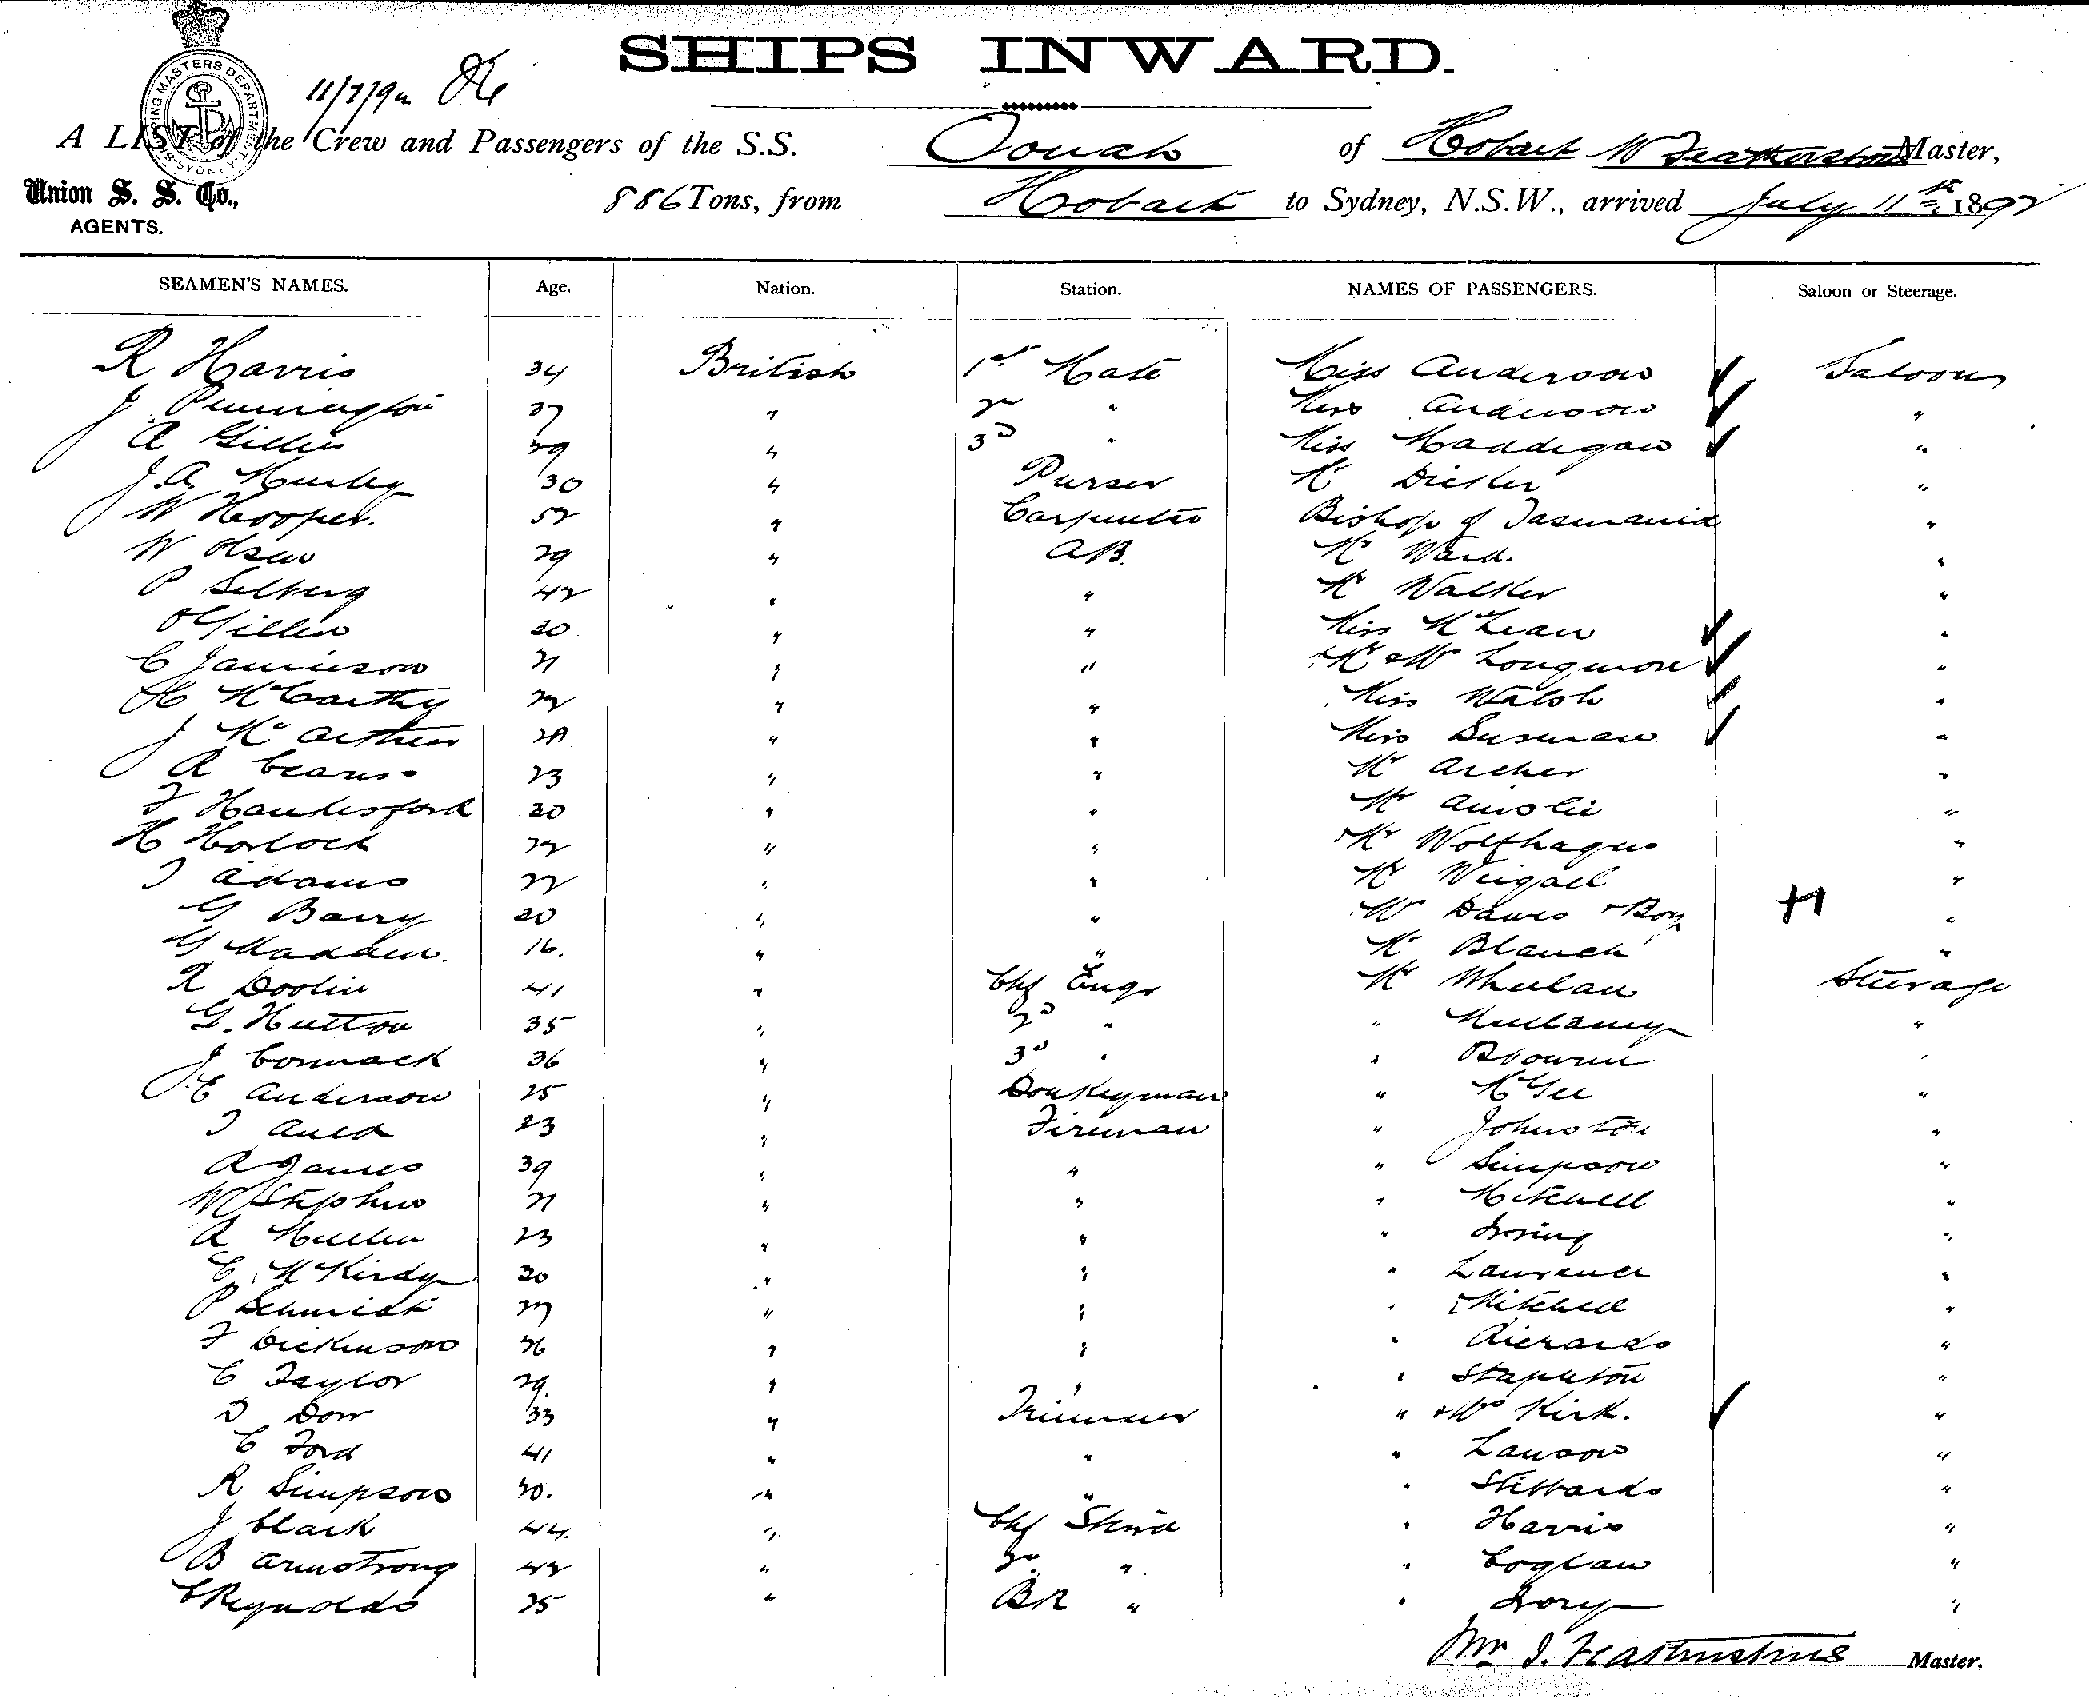 SHIPS INWARD.
SHIPPING MASTERS DEPARTMENT SYDNEY
11/7/92
A LIST of the Crew and Passengers of the S.S. Oonah of Hobart W Featherstone Master,
Union S. S. Co., AGENTS.
886 Tons, from Hobart to Sydney, N.S.W., arrived July 11th 1892
SEAMEN'S NAMES. Age. Nation. Station. NAMES OF PASSENGERS. Saloon or Steerage.
R Harris 34 British 1st Mate Miss Anderson ✓ Saloon
J Pennington 37 " 2nd " Miss Anderson ✓ "
A Gillies 29 " 3rd " Miss Maddigan ✓ "
J. A. 30 " Purser Mr Dicker "
W Hooper. 52 " Carpenter Bishop of Tasmania "
W Olsen 29 " A.B. Mr Ward. "
P Selberg 42 " " Mr Walker "
20 " " Miss McLean ✓ "
C Jamieson 21 " " Mr & Mrs Longmore ✓ "
H McCarthy 22 " " Miss Walsh ✓ "
J McArthur " " Miss ✓ "
A 23 " " Mr Archer "
F Handesford 20 " " Mr Ainslie "
H Horlock 22 " " Mr Wolfhagen "
T Adams 22 " " Mr Weigall "
G Barry 20 " " Mr Davis & Boy "
G Madden. 16. " " Mr Blanch "
R Doolin 41 " Chf Engr Mr Wheelan Steerage
G. Hutton 35 " 2d " " Mullamy "
J Cormack 36 " 3d " " Browne "
E Anderson 25 " Donkeyman " McGee "
T Auld 23 " Fireman " Johnston "
A James 39 " " " Simpson "
W Stephens 21 " " " Mitchell "
A 23 " " " Irving "
C McKirdy 30 " " " Lawrence "
P Schmidt 27 " " " Mitchell "
F Dickinson 26 " " " Richards "
C Taylor 29. " " " Stapleton "
D Dow 33 " Trimmer " & Mrs Kirk. ✓ "
C Ford 41 " " " Lawson "
R Simpson 30. " " " Stibbards "
J Clark 44 " Chf Stwd " Harris "
B Armstrong 42 " 2nd " " Coglan "
C Reynolds 25 " BR " " Ivory "
Wm J. Featherstone Master.